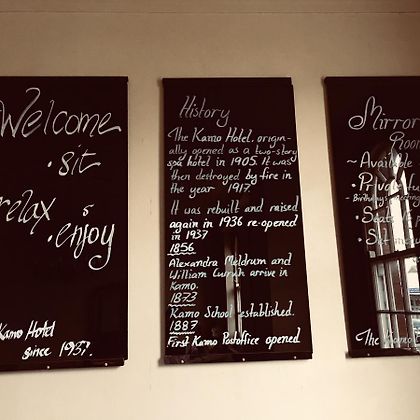 Welcome
• sit
relax &
• enjoy
Kamo Hotel
since 1937.
History
The Kamo Hotel, origin-
ally opened as a two-story
spa hotel in 1905. It was
then destroyed by fire in
the year 1917.
It was rebuilt and raised
again in 1936 re-opened
in 1937
1856
Alexandra Meldrum and
William Carruth arrive in
Kamo.
1873
Kamo School established.
1887
First Kamo Postoffice opened
Mirror
Room
~ Available
• Private
• Seats
The Kamo